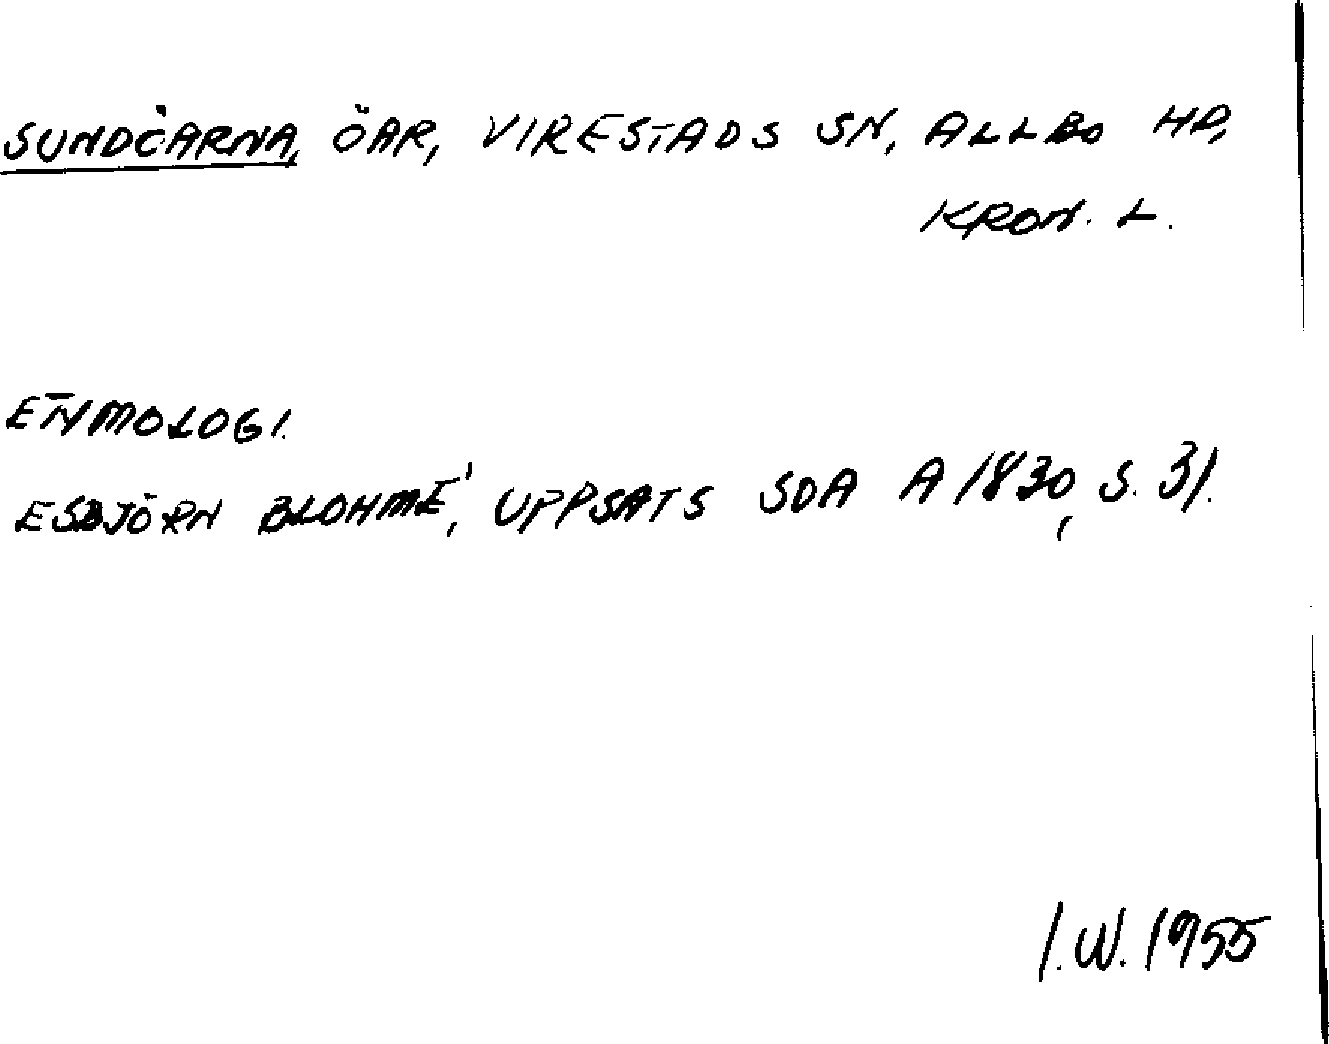 SUNDÖARNA, ÖAR, VIRESTADS SN, ALLBO HD,
KRON. L.
ETYMOLOGI.
ESBJÖRN BLOHMÉ, UPPSATS SOA A 1830, S. 31.
I.W. 1955